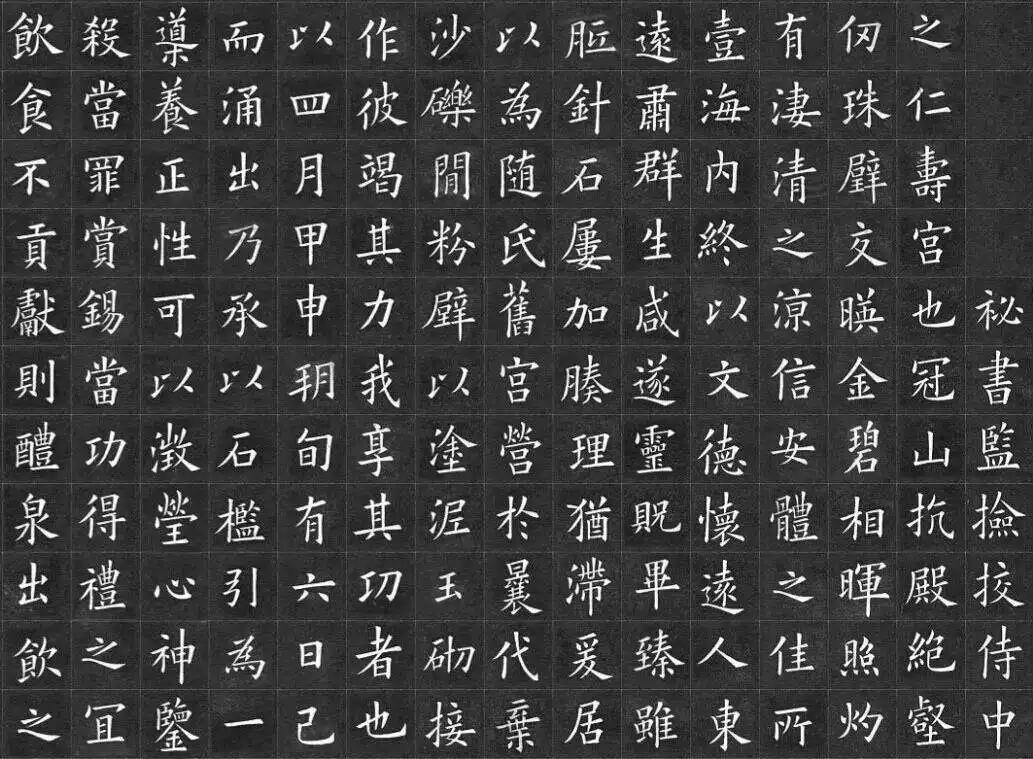 祕書監撿挍侍中
之仁壽宮也冠山抗殿絶壑
仞珠璧交暎金碧相暉照灼
有淒清之涼信安體之佳所
壹海內終以文德懷遠人東
遠肅群生咸遂靈貺畢臻雖
胝針石屢加腠理猶滯爰居
以為隨氏舊宮營於曩代棄
沙礫閒粉壁以塗泥玉砌接
作彼竭其力我享其功者也
以四月甲申朔旬有六日己
而涌出乃承以石檻引為一
導養正性可以澂瑩心神鑒
殺當罪賞錫當功得禮之宜
飲食不貢獻則醴泉出飲之